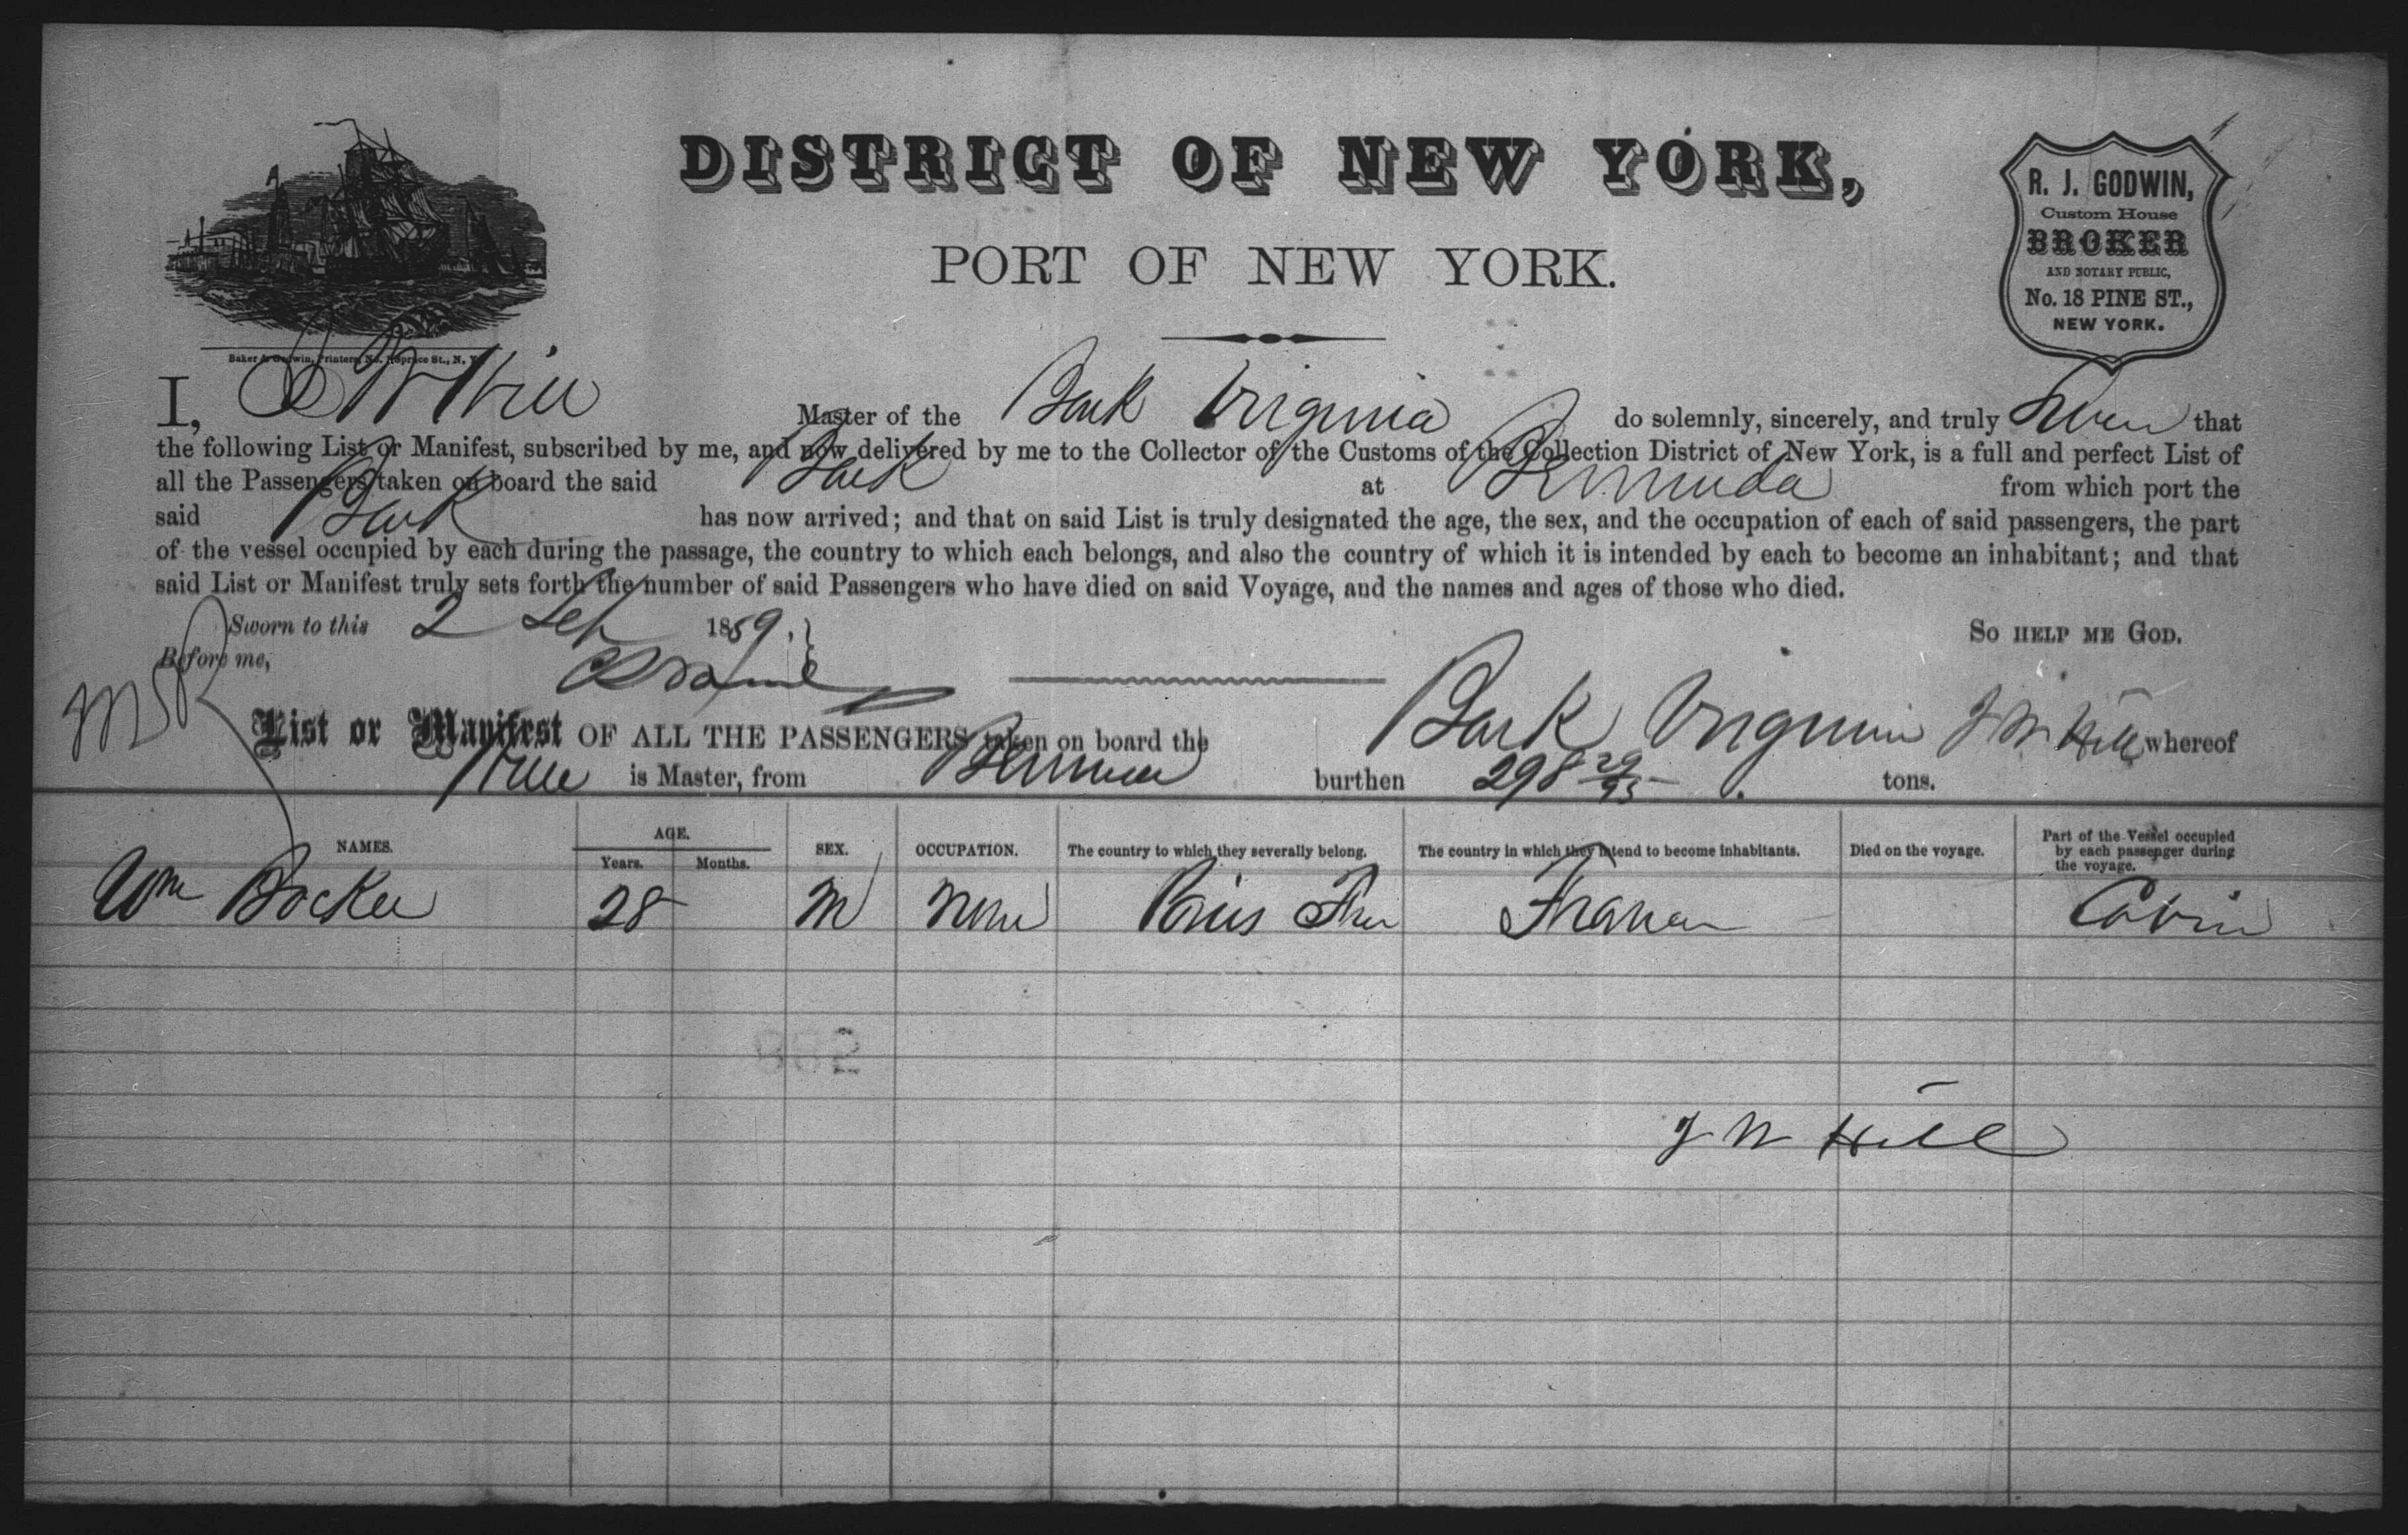 DISTRICT OF NEW YORK,
PORT OF NEW YORK.
R. J. GODWIN,
Custom House
BROKER
AND NOTARY PUBLIC,
No. 18 PINE ST.,
NEW YORK.
Baker & Godwin, Printers, No. 1 Spruce St., N. Y.
I, J W Hill Master of the Bark Virginia do solemnly, sincerely, and truly swear that
the following List or Manifest, subscribed by me, and now delivered by me to the Collector of the Customs of the Collection District of New York, is a full and perfect List of
all the Passengers taken on board the said Bark at Bermuda from which port the
said Bark has now arrived; and that on said List is truly designated the age, the sex, and the occupation of each of said passengers, the part
of the vessel occupied by each during the passage, the country to which each belongs, and also the country of which it is intended by each to become an inhabitant; and that
said List or Manifest truly sets forth the number of said Passengers who have died on said Voyage, and the names and ages of those who died.
Sworn to this 2 1859. So HELP ME GOD.
Before me,
List or Manifest OF ALL THE PASSENGERS taken on board the Bark Virginia J W Hill whereof
Hill is Master, from Bermuda burthen 298 29/95 tons.
NAMES. AGE. Years. Months. SEX. OCCUPATION. The country to which they severally belong. The country in which they intend to become inhabitants. Died on the voyage. Part of the Vessel occupied by each passenger during the voyage.
Wm Bocker 28 M None Paris France Cabin
J W Hill